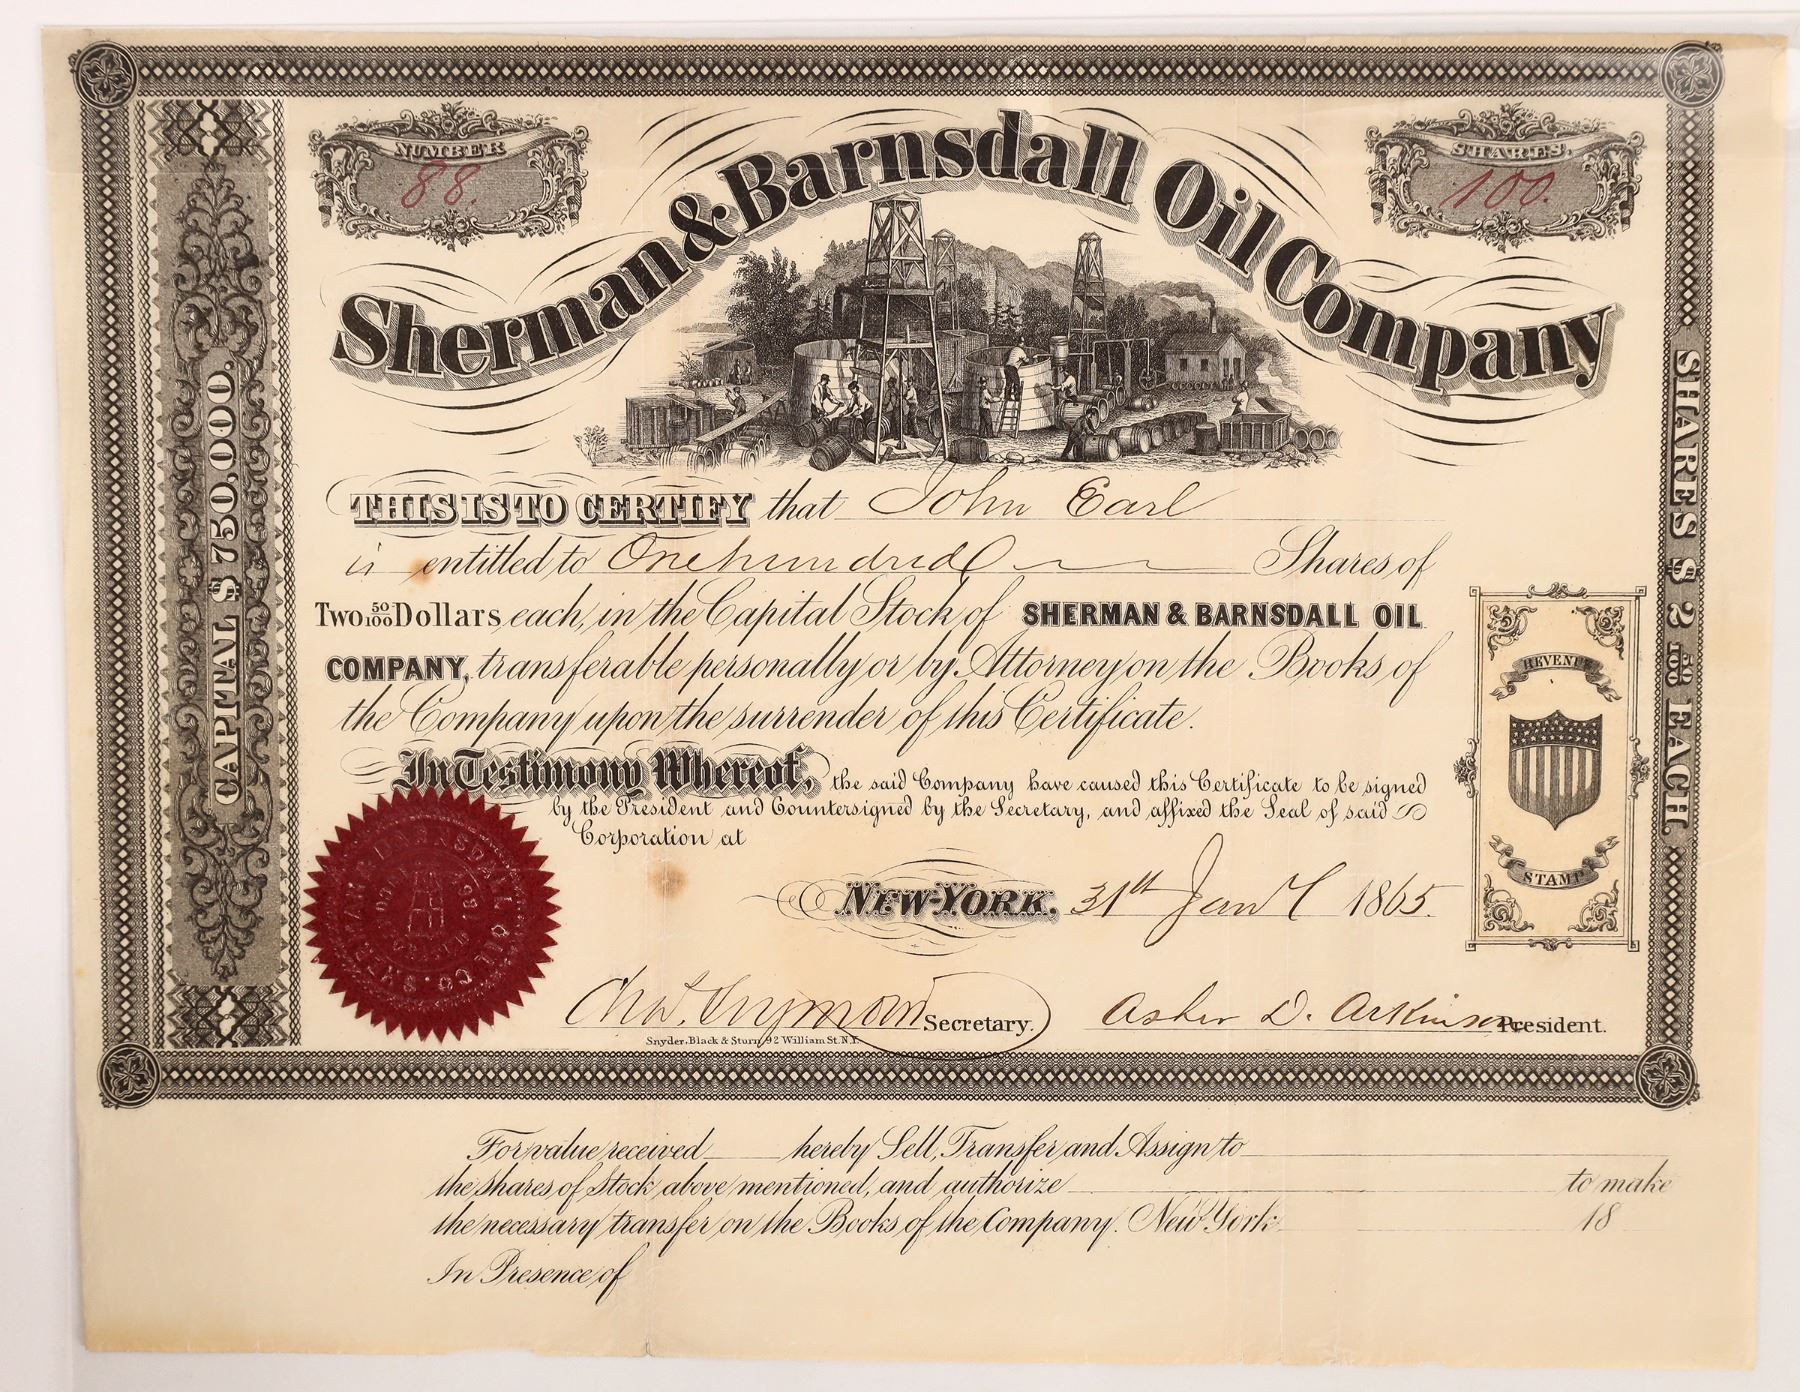 NUMBER
88.
Sherman & Barnsdall Oil Company
SHARES.
100.
CAPITAL $750,000.
SHARES $ 2 50/100 EACH
THIS IS TO CERTIFY that John Earl
is entitled to One hundred Shares of
Two 50/100 Dollars each, in the Capital Stock of SHERMAN & BARNSDALL OIL
COMPANY, transferable personally or by Attorney on the Books of
the Company upon the surrender of this Certificate.
In Testimony Whereof, the said Company have caused this Certificate to be signed
by the President and Countersigned by the Secretary, and affixed the Seal of said
Corporation at
NEW-YORK, 31th Jany 1865.
REVENUE
STAMP
SHERMAN & BARNSDALL OIL CO.
Secretary.
Asher D. Atkinson President.
Snyder, Black & Sturn, 92 William St. N.Y.
For value received hereby Sell, Transfer and Assign to
the shares of Stock above mentioned, and authorize to make
the necessary transfer on the Books of the Company. New York 18
In Presence of